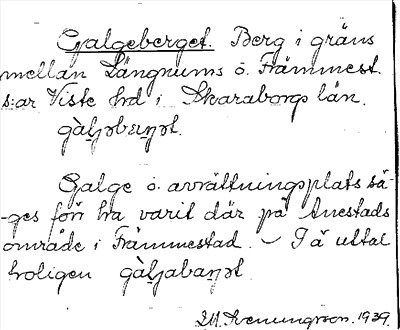 Galgeberget. Berg i gräns
mellan Längnums o. Främmest.
s:ar Viste hd i Skaraborgs län.
Galge o. avrättningsplats sä-
-ges förr ha varit där på Anestads
område i Främmestad. – I ä uttal
troligen
1939.